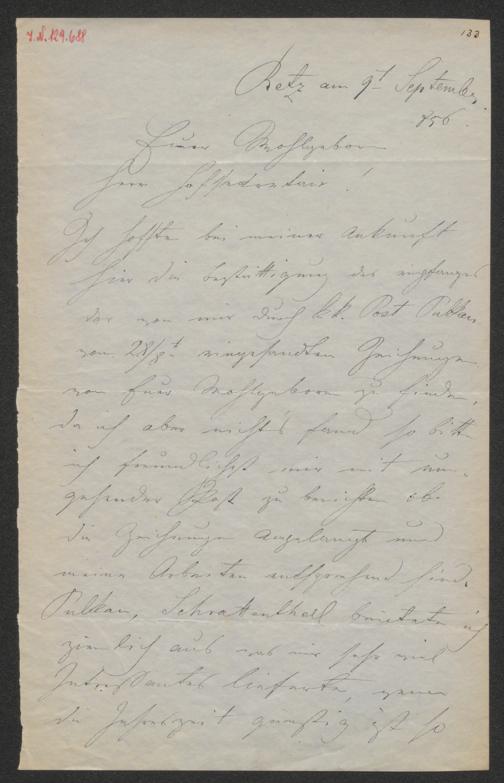 J.N. 129.688
133
Retz am 9t September
856.
Euer Wohlgeborn
Herr Hofsecretair!
Ich hoffte bei meiner Ankunft
hier die Bestättigung des empfanges
der von mir durch k.k. Post Pulkau
vom 28/8t eingesandten Zeichnungen
von Euer Wohlgeborn zu finden,
da ich aber nichts fand so bitte
ich freundlichst mir mit um-
gehender Post zu berichten ob
die Zeichnungen angelangt und
meine Arbeiten entsprechend sind.
Pulkau, Schrattenthal ich
ziemlich aus was mir sehr viel
Intressantes lieferte, wenn
die Jahreszeit günstig ist so